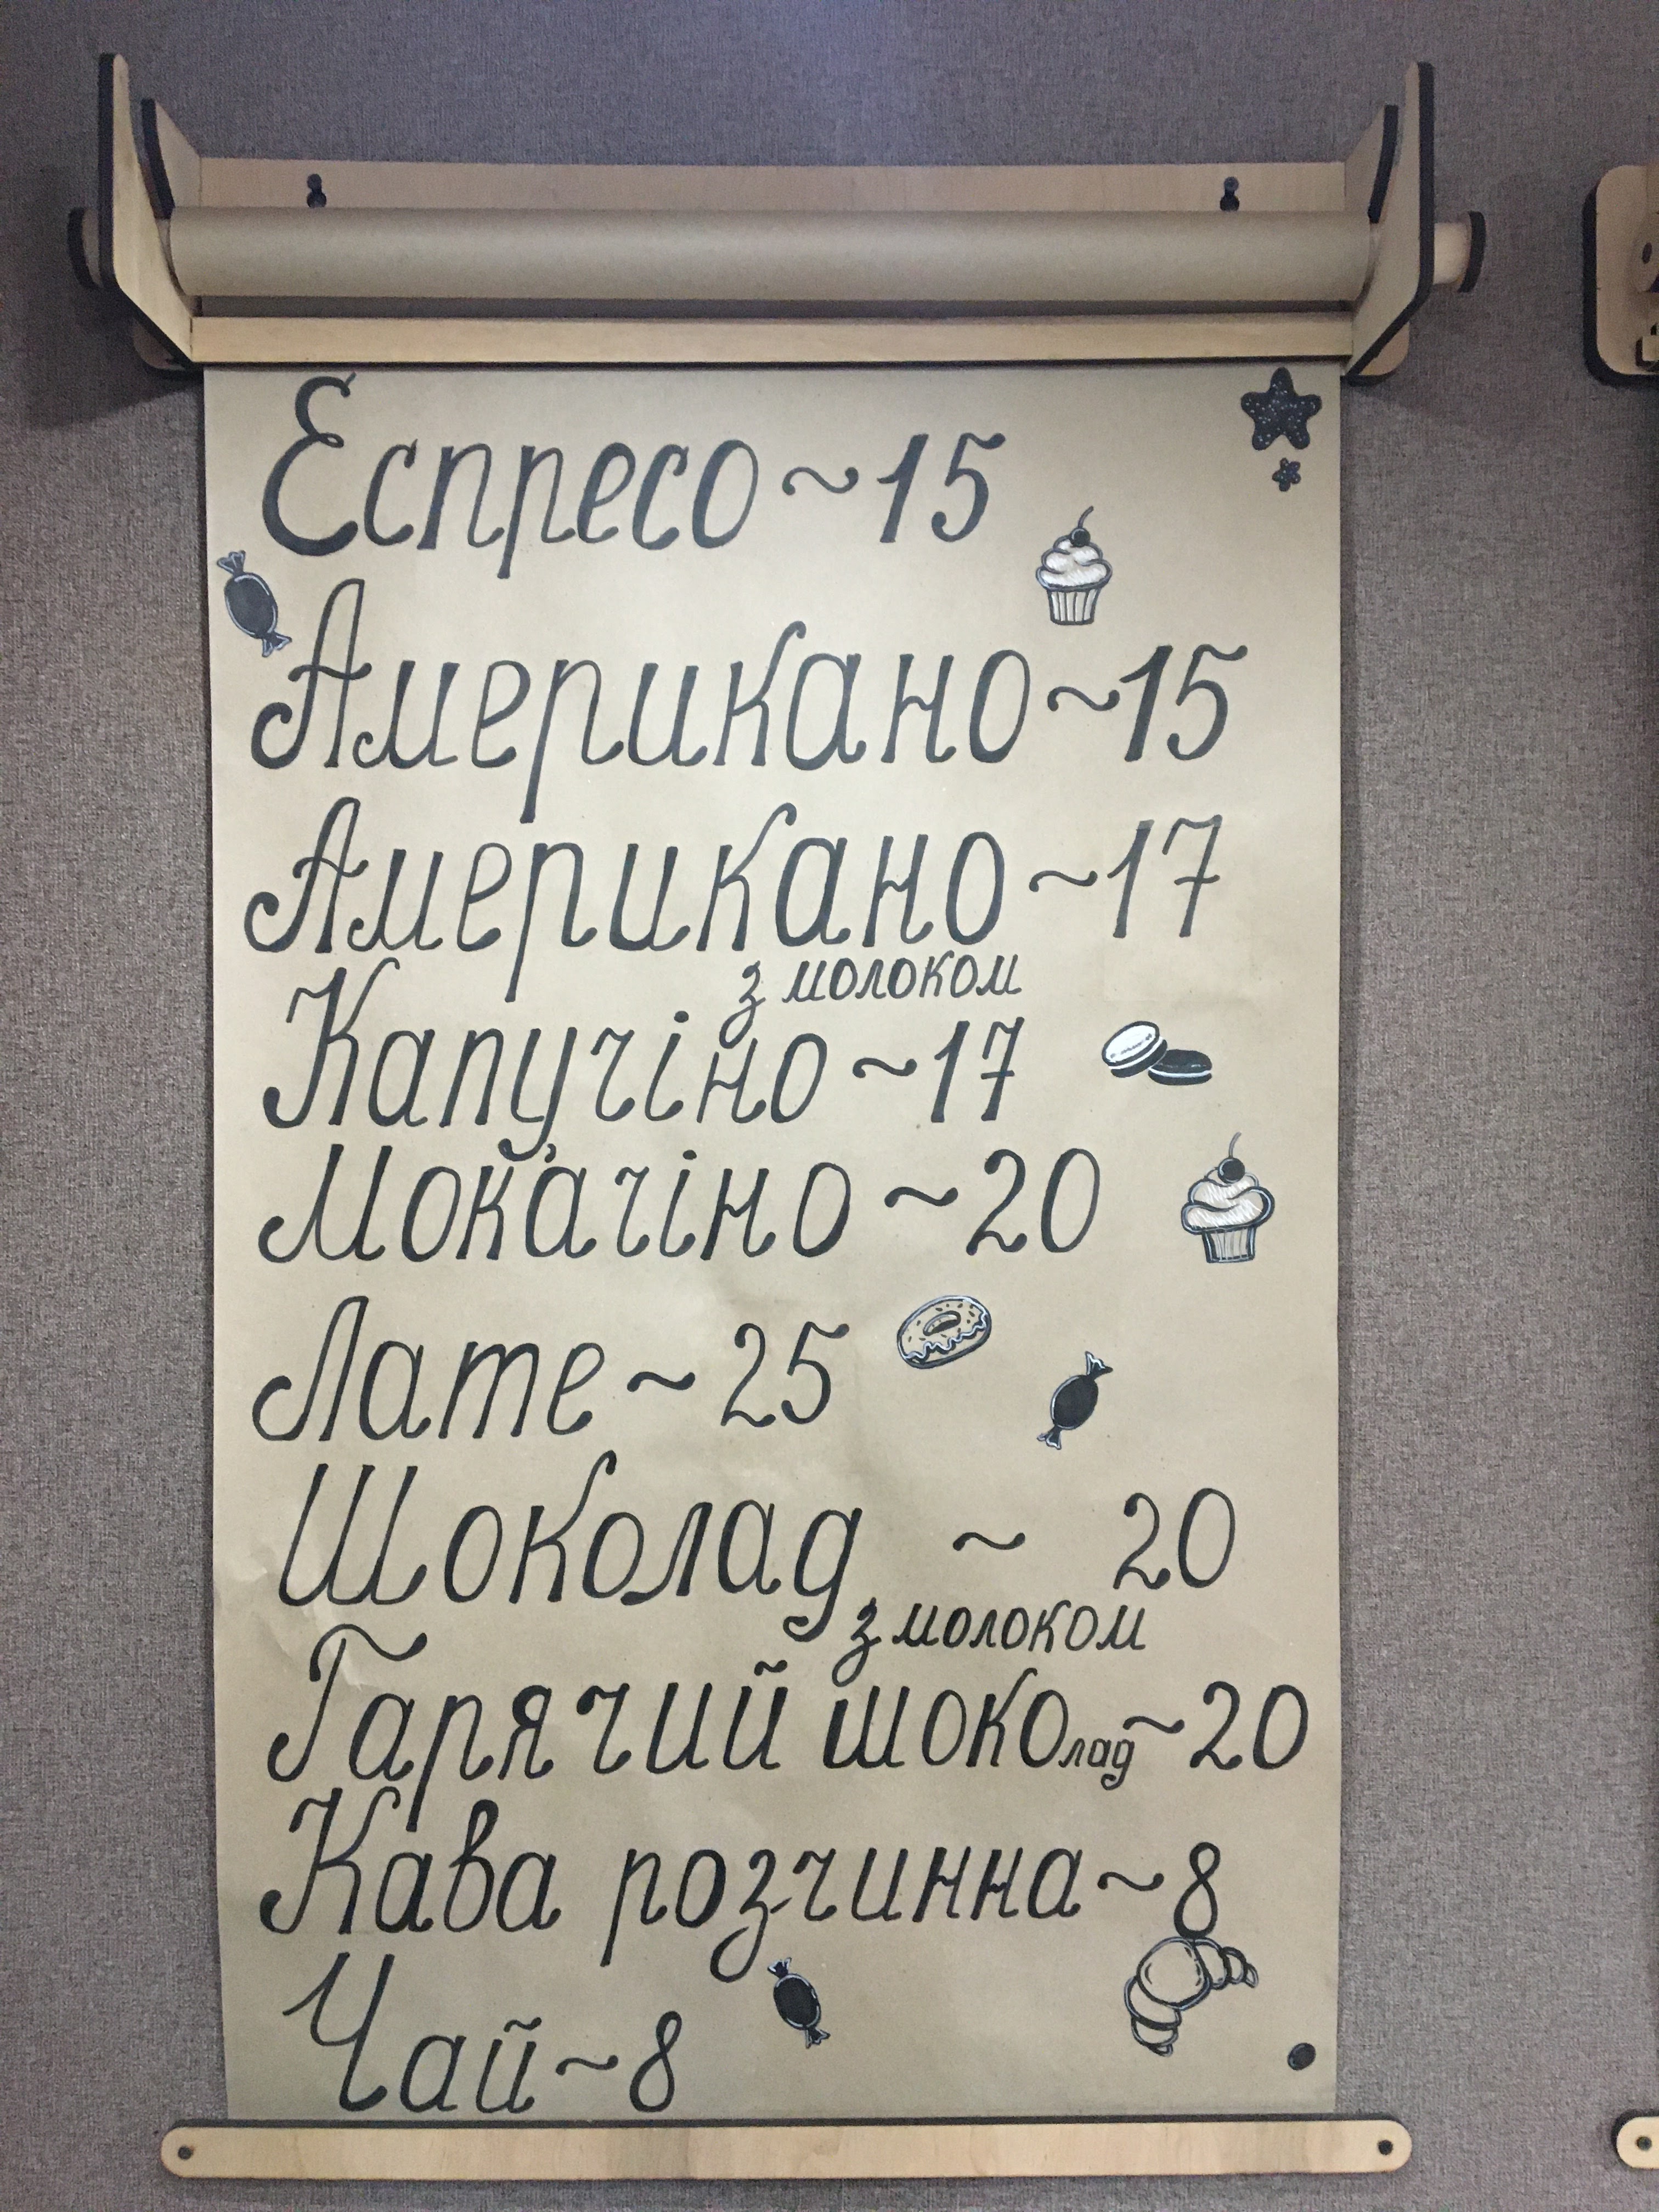 Еспресо ~ 15
Американо ~ 15
Американо ~ 17
з молоком
Капучіно ~ 17
Мокачіно ~ 20
Лате ~ 25
Шоколад ~ 20
з молоком
Гарячий шоколад ~ 20
Кава розчинна ~ 8
Чай ~ 8